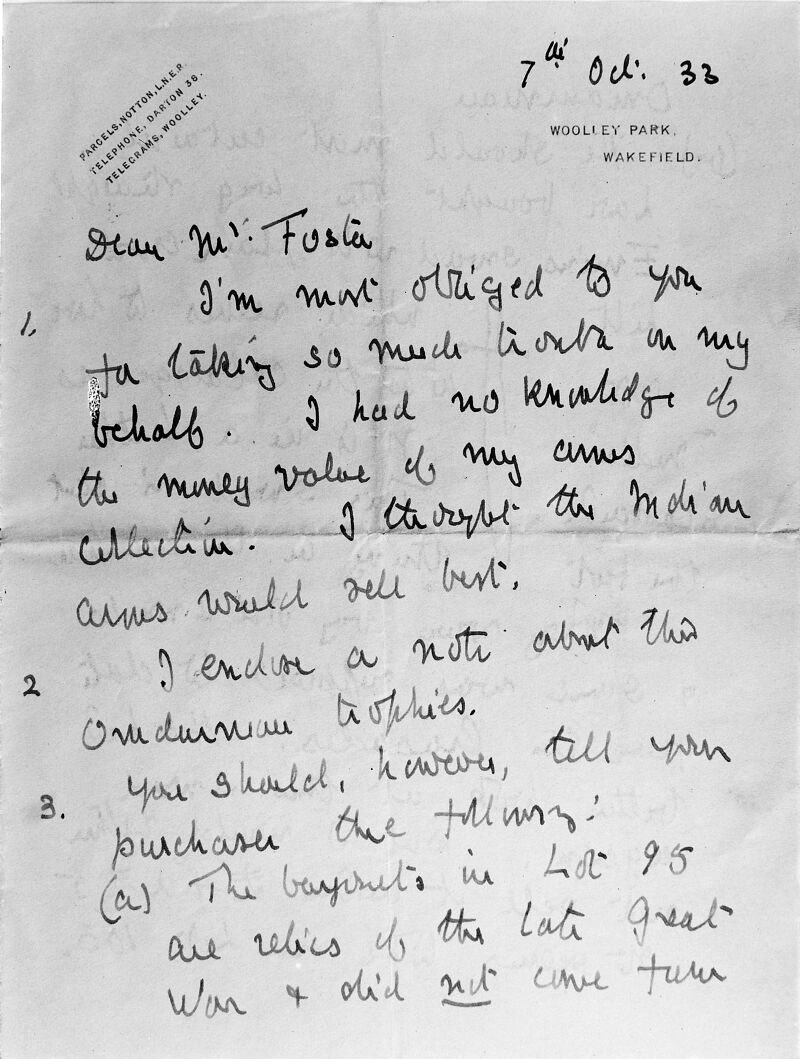 7th Oct. 33
PARCELS, NOTTON, L.N.E.R.
TELEPHONE, DARTON 38.
TELEGRAMS, WOOLLEY.
WOOLLEY PARK,
WAKEFIELD.
Dear Mr. Foster
1, I'm most obliged to you
for taking so much trouble on my
behalf. I had no knowledge of
the money value of my arms
collection. I thought the Indian
arms would sell best.
2 I enclose a note about the
Omdurman trophies.
3. You should, however, tell your
purchaser the following:
(a) The bayonets in Lot 95
are relics of the late Great
War & did not come from